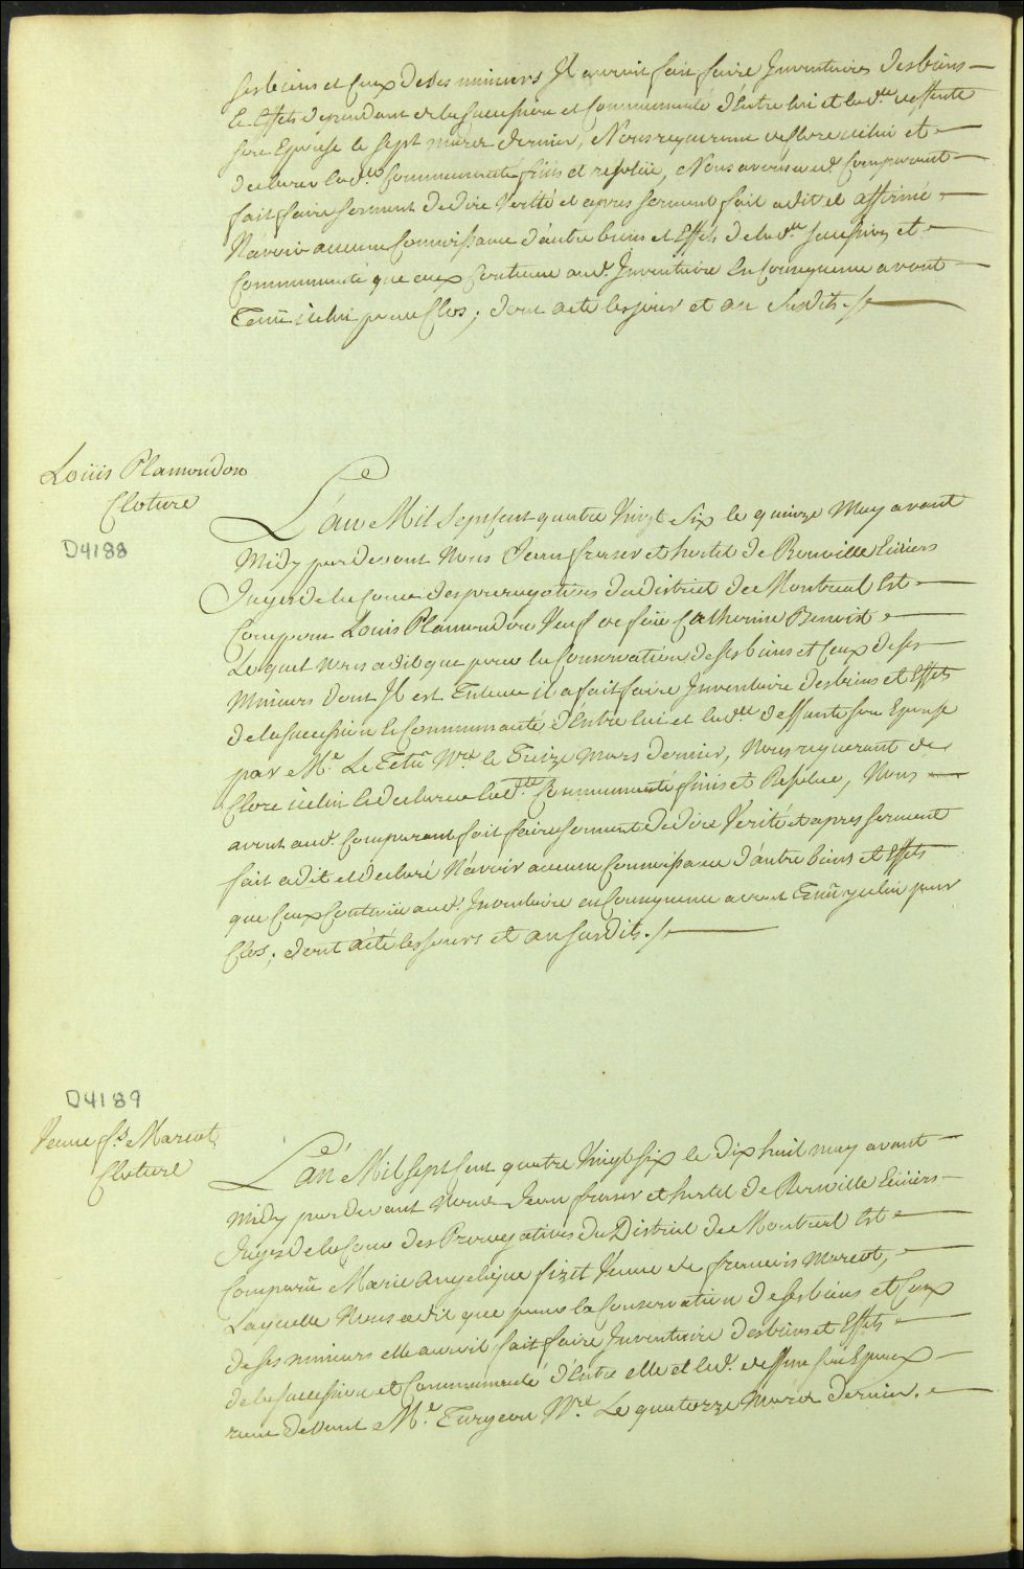 Ses biens et Ceux de ses mineurs Il auroit fait faire Inventaires des biens
Et Effets dependant de la Succession et Communauté d'Entre lui et lad.te deffunte
Son Epouse le sept mars dernier, Nous requerant de Clore icelui et
declarer lad.te Communauté finis et resolüe, Nous avons aud. Comparant
fait faire serment de dire Verité et apres serment fait a dit et affirmé
N'avoir aucune Connoissance d'autre biens et Effets de lad.te Succession et
Communauté que ceux Contenue aud. Inventaire En Consequence avons
Tenü icelui pour Clos; dont acte les jour et an Susdits.
Loüis Plamondon
Cloture
D4188
L'an Mil Sept Cent quatre Vingt Six le quinze May avant
Midy pardevant Nous Jean fraser et hertel de Rouville Ecüiers
Juges de la Cour des prerogatives du district de Montreal Est
Comparu Louis Plamondon Veuf de feüe Catherine Benoist
Lequel nous a dit que pour la Conservation de Ses biens et Ceux de ses
Mineurs dont Il est Tuteur il a fait faire Inventaire des biens et Effets
de la Succession et Communauté d'Entre lui et lad.te deffunte Son Epouse
par M.e Le Ns.re le Treize Mars dernier, Nous requerant de
Clore icelui et declarer lad.te Communauté finis et Resolue, Nous
avons aud. Comparant fait faire serment de dire Verité et apres serment
fait a dit et declaré N'avoir aucune Connoissance d'autre biens et Effets
que Ceux Contenüe aud. Inventaire en Consequence avons Tenü ycelui pour
Clos; dont acte les jours et an Susdits.
D4189
Veuve f.s Marcot
Cloture
L'an Mil Sept Cent quatre Vingt Six le dix huit may avant
Midy pardevant Nous Jean fraser et hertel De Rouville Ecüiers
Juges de la Cour des Prerogatives du District de Montreal Est
Comparü Marie Angelique fizet Veuve de francois Marcot,
Laquelle Nous a dit que pour la Conservation de ses biens et Ceux
de ses mineurs elle auroit fait faire Inventaire des biens et Effets
de la Succession et Communauté d'Entre elle et led. deffunt Son Epoux
devant M.e Turgeon N.re Le quatorze Mars dernier.